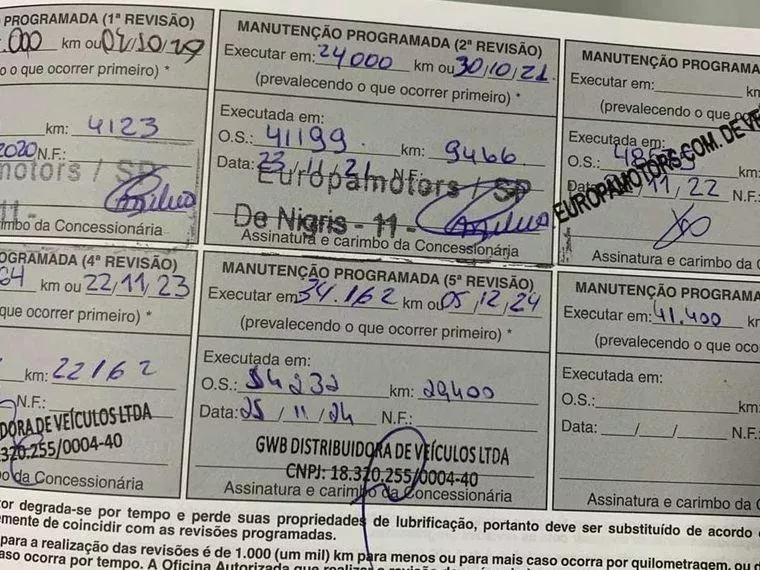 PROGRAMADA (1ª REVISÃO)
.000 km ou 04/10/
o o que ocorrer primeiro) *
km: 4123
2020 N.F.:
motors / SP
- 11 -
imbo da Concessionária
MANUTENÇÃO PROGRAMADA (2ª REVISÃO)
Executar em: 24000 km ou 30/10/21
(prevalecendo o que ocorrer primeiro) *
Executada em:
O.S.: 41199 km: 9466
Data: 23/11/21 N.F.:
Europamotors / SP
De Nigris - 11 -
Assinatura e carimbo da Concessionária
MANUTENÇÃO PROGRAMA
Executar em: km
(prevalecendo o que oco
Executada em:
O.S.: km:
Data: /11/22 N.F.:
EUROPAMOTORS.COM.DE VE
Assinatura e carimbo da C
OGRAMADA (4ª REVISÃO)
64 km ou 22/11/23
que ocorrer primeiro) *
km: 22162
N.F.:
DORA DE VEÍCULOS LTDA
.320.255/0004-40
o da Concessionária
MANUTENÇÃO PROGRAMADA (5ª REVISÃO)
Executar em: 34.162 km ou 05/12/24
(prevalecendo o que ocorrer primeiro) *
Executada em:
O.S.: 54232 km: 29400
Data: 25/11/24 N.F.:
GWB DISTRIBUIDORA DE VEÍCULOS LTDA
CNPJ: 18.320.255/0004-40
Assinatura e carimbo da Concessionária
MANUTENÇÃO PROGRAMA
Executar em: 41.400 km
(prevalecendo o que oco
Executada em:
O.S.: km:
Data: / / N.F.:
Assinatura e carimbo da C
or degrada-se por tempo e perde suas propriedades de lubrificação, portanto deve ser substituído de acordo
emente de coincidir com as revisões programadas.
para a realização das revisões é de 1.000 (um mil) km para menos ou para mais caso ocorra por quilometragem, ou d
aso ocorra por tempo. A Oficina Autorizada que